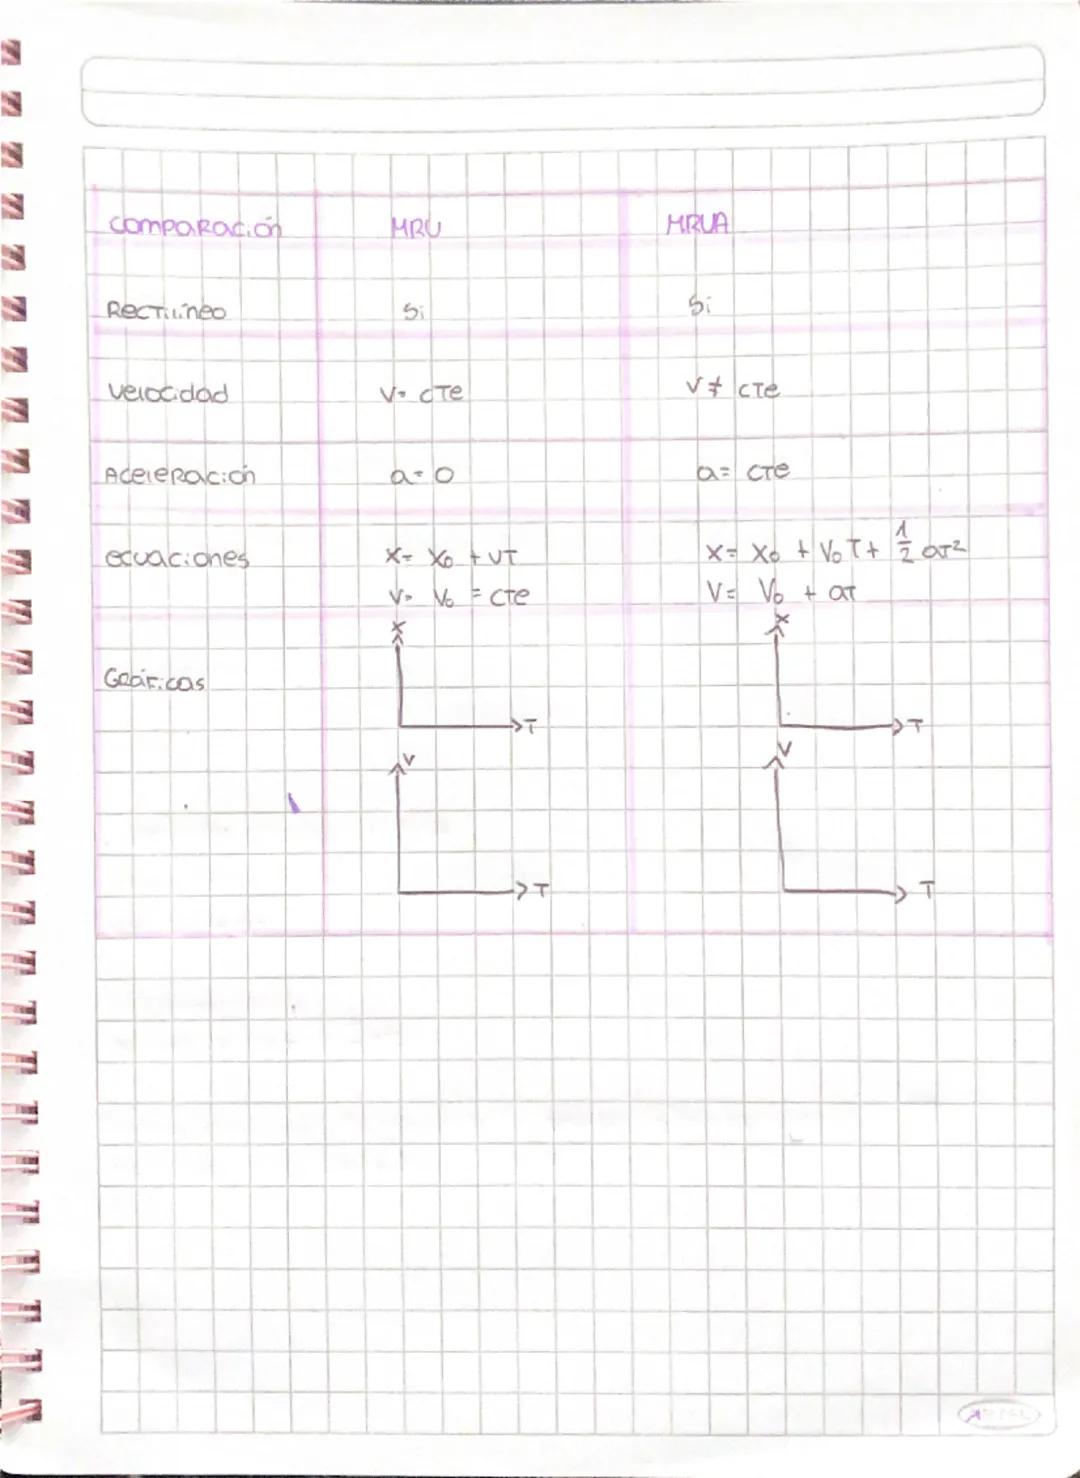 Comparación MRU MRUA
Rectilíneo Si Si
Velocidad V= cTe V ≠ cTe
Aceleración a= 0 a= cTe
ecuaciones X= X₀ + VT X= X₀ + V₀T + 1/2 aT²
V= V₀ = cTe V= V₀ + aT
X X
Gráficas
T T
V V
T T